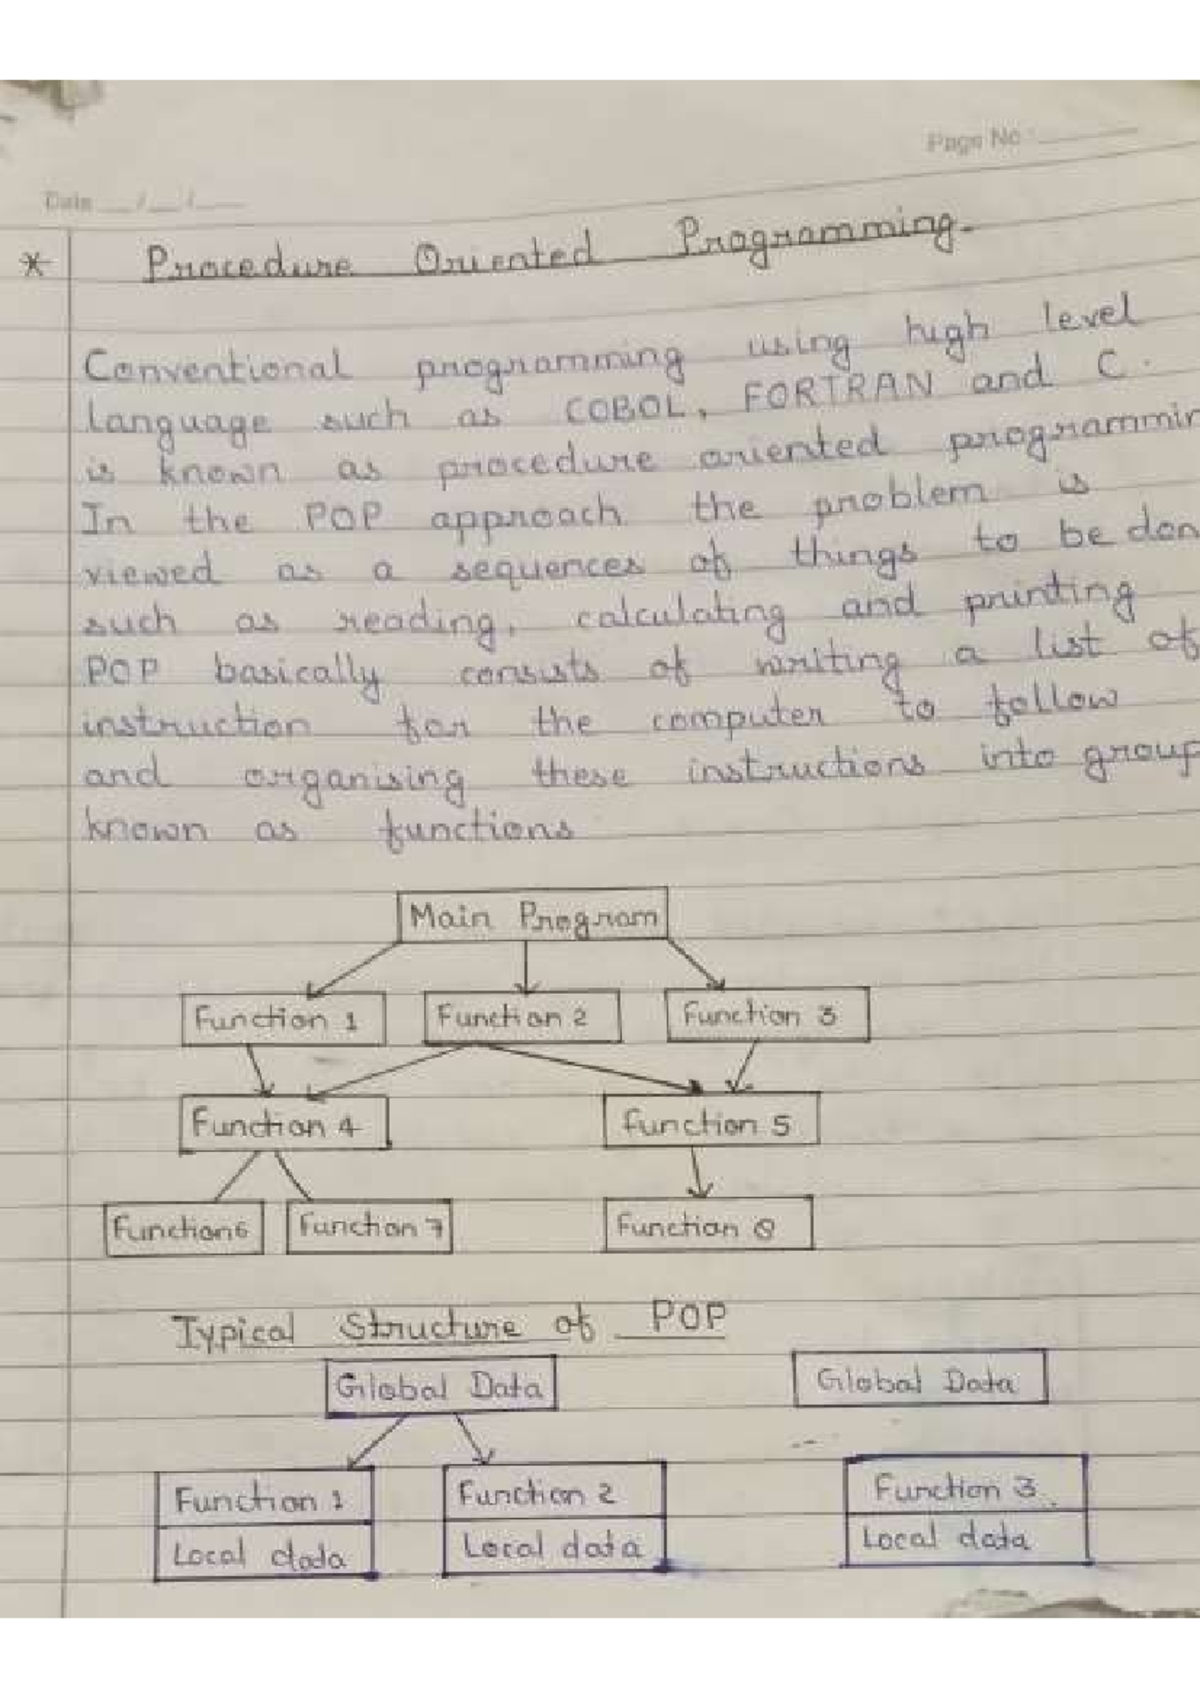 Page No :
Date __/__/__
* Procedure Oriented Programming.
Conventional programming using high level
language such as COBOL, FORTRAN and C.
is known as procedure oriented programmin
In the POP approach the problem is
viewed as a sequences of things to be don
such as reading, calculating and printing
POP basically consists of writing a list of
instruction for the computer to follow
and organising these instructions into group
known as functions
Main Program
Function 1 Function 2 Function 3
Function 4 Function 5
Function6 Function 7 Function 8
Typical Structure of POP
Global Data Global Data
Function 1 Function 2 Function 3
Local data Local data Local data